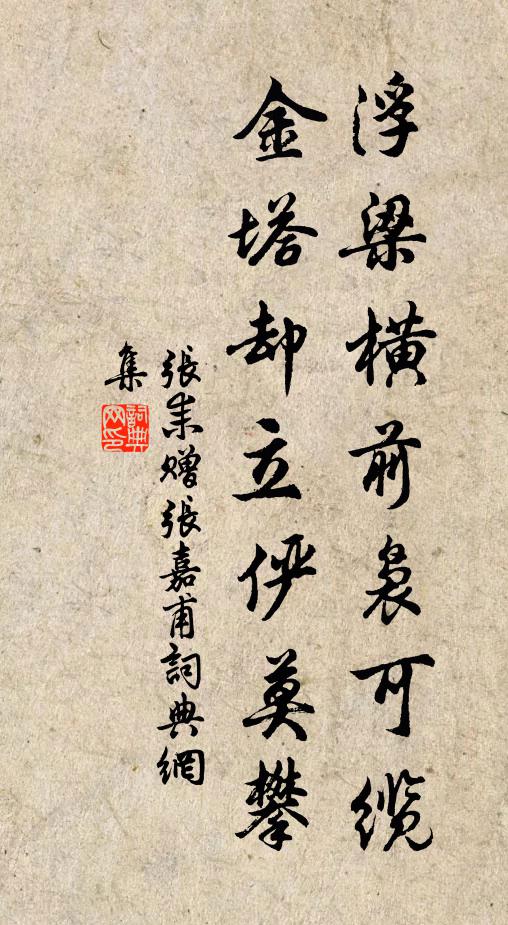 浮梁横前袅可缆
金塔却立俨莫攀
張耒贈張嘉甫詞典網
集
詞典
网印